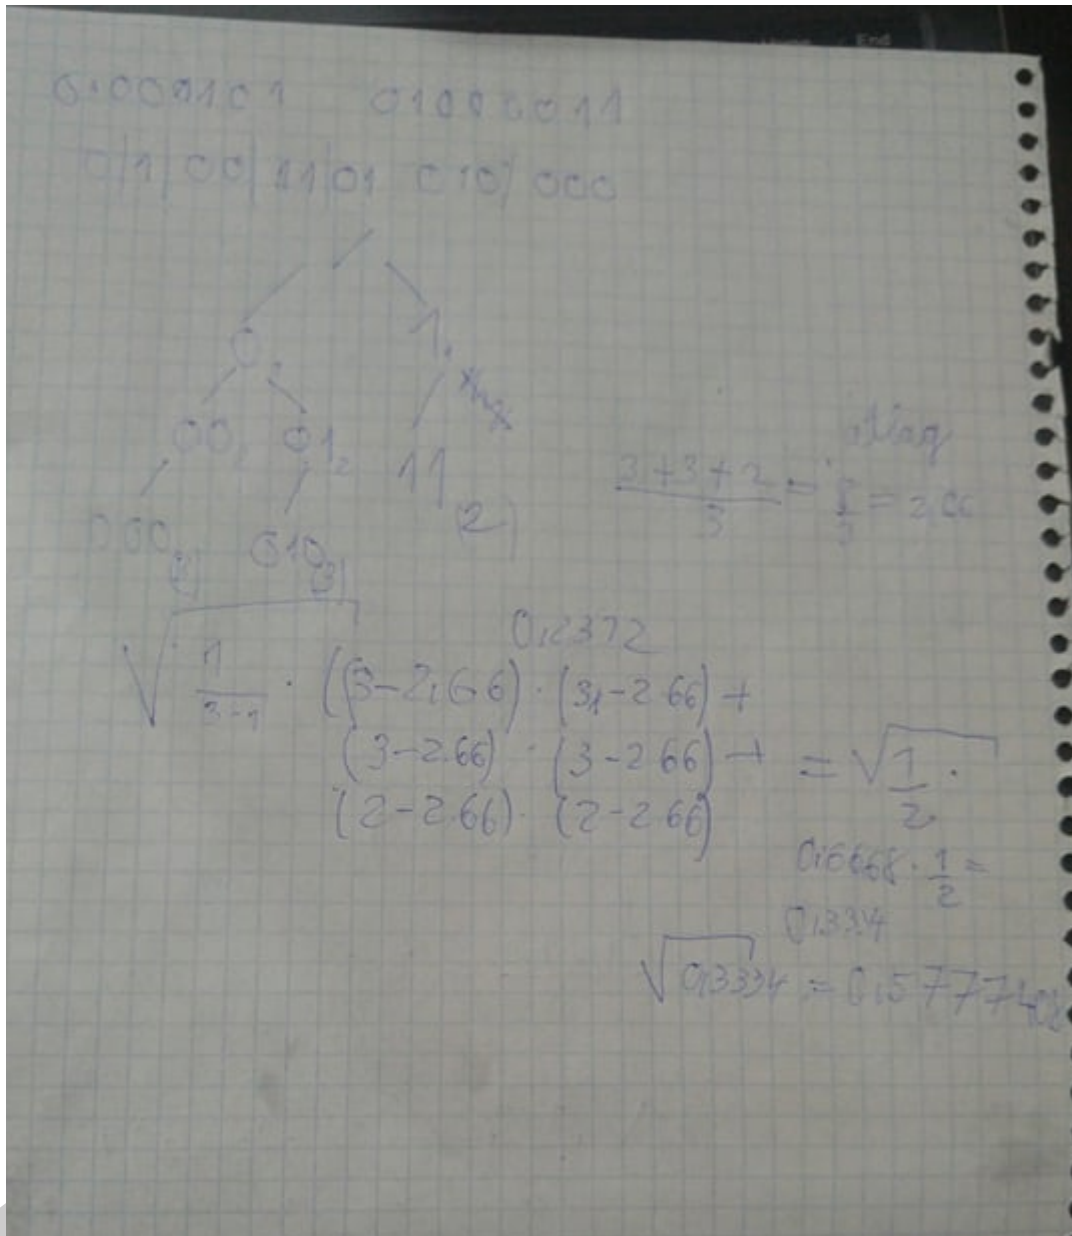 01001101 01000011
0|1|00|11|01 010|000
0,
1.
00, 01₂ 11 (2)
000 (3) 010 (3)
átlag
(3+3+2)/3 = 8/3 = 2,66
0,2372
√(1/(3-1)) · ((3-2,66) · (3,-2 66) +
(3-2.66) · (3-2 66) + = √(1/2 ·
(2-2.66) · (2-2 66))
0,6668 · 1/2 =
0,3334
√0,3334 = 0,5777408